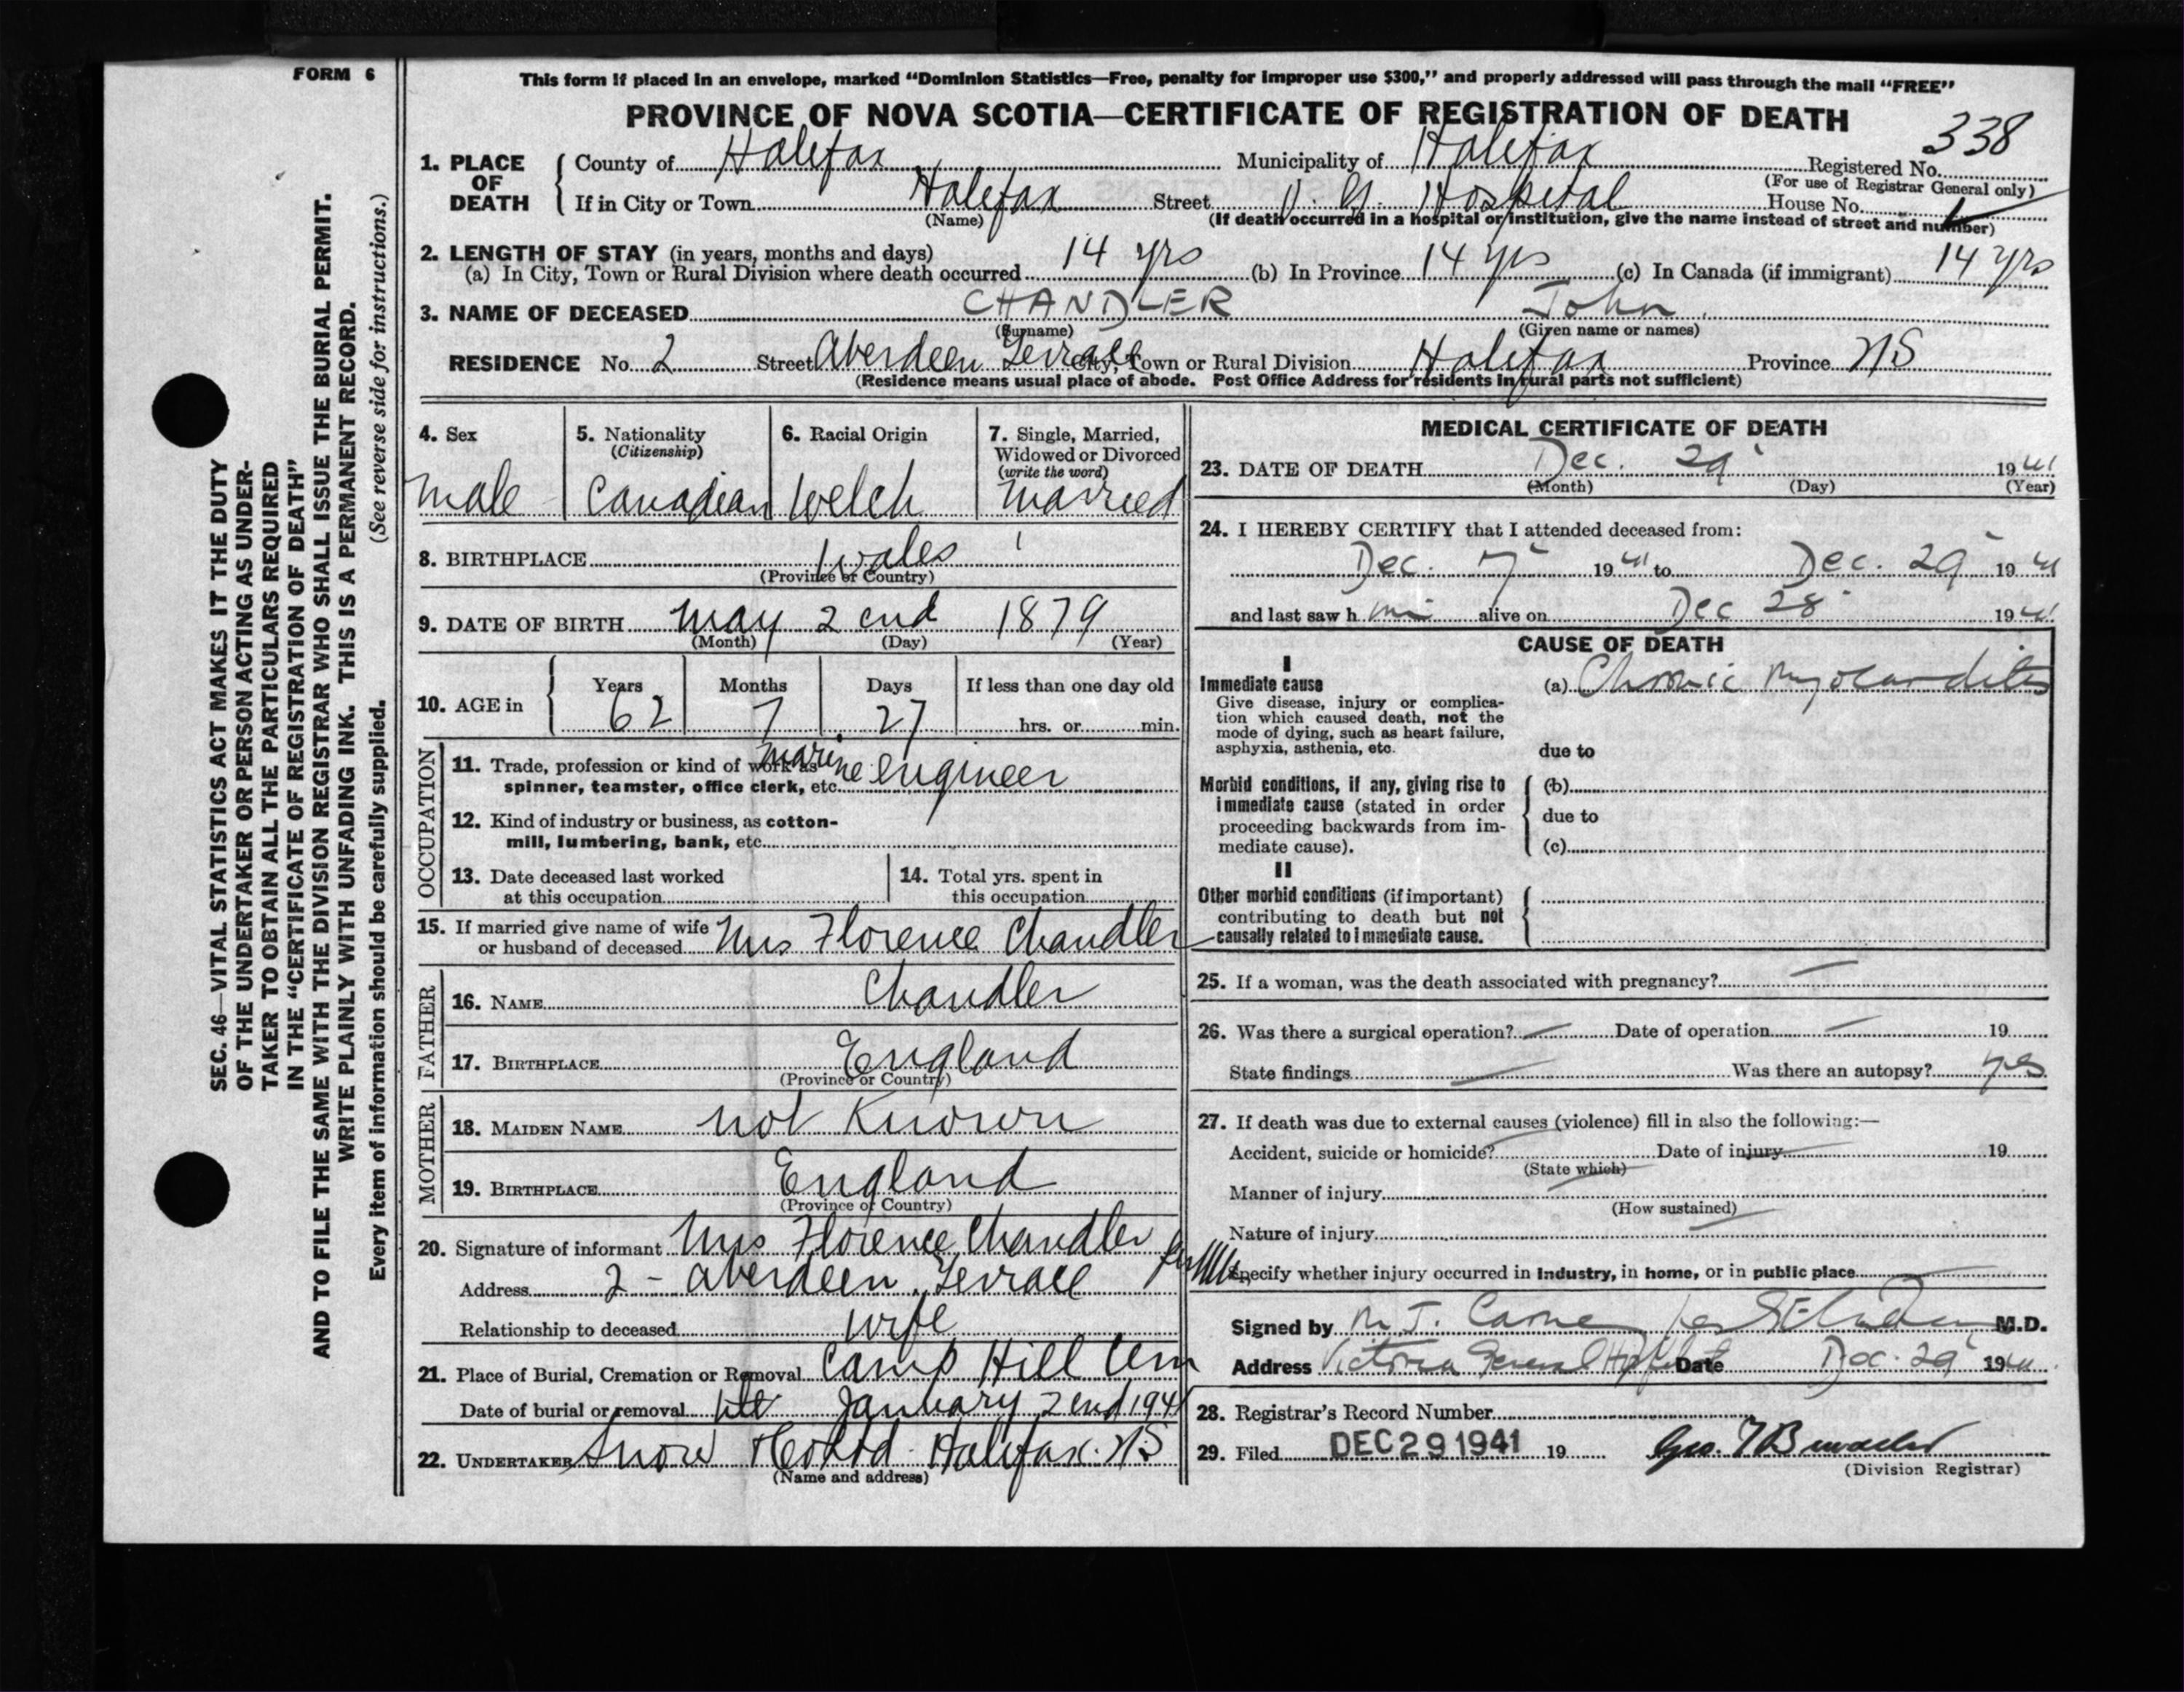 FORM 6
This form if placed in an envelope, marked “Dominion Statistics—Free, penalty for improper use $300,” and properly addressed will pass through the mail “FREE”
PROVINCE OF NOVA SCOTIA—CERTIFICATE OF REGISTRATION OF DEATH
338
1. PLACE OF DEATH County of Halifax Municipality of Halifax Registered No.
(For use of Registrar General only)
If in City or Town Halifax Street V. G. Hospital House No.
(Name) (If death occurred in a hospital or institution, give the name instead of street and number)
2. LENGTH OF STAY (in years, months and days)
(a) In City, Town or Rural Division where death occurred 14 yrs (b) In Province 14 yrs (c) In Canada (if immigrant) 14 yrs
3. NAME OF DECEASED CHANDLER John
(Surname) (Given name or names)
RESIDENCE No. 2 Street Aberdeen Terrace City, Town or Rural Division Halifax Province NS
(Residence means usual place of abode. Post Office Address for residents in rural parts not sufficient)
4. Sex
male
5. Nationality
(Citizenship)
Canadian
6. Racial Origin
Welch
7. Single, Married,
Widowed or Divorced
(write the word)
Married
8. BIRTHPLACE Wales
(Province or Country)
9. DATE OF BIRTH May 2end 1879
(Month) (Day) (Year)
10. AGE in Years Months Days If less than one day old
62 7 27 hrs. or min.
OCCUPATION
11. Trade, profession or kind of work as
spinner, teamster, office clerk, etc. marine engineer
12. Kind of industry or business, as cotton-
mill, lumbering, bank, etc.
13. Date deceased last worked
at this occupation
14. Total yrs. spent in
this occupation
15. If married give name of wife
or husband of deceased Mrs Florence Chandler
FATHER
16. NAME Chandler
17. BIRTHPLACE England
(Province or Country)
MOTHER
18. MAIDEN NAME not Known
19. BIRTHPLACE England
(Province or Country)
20. Signature of informant Mrs Florence Chandler
Address 2 - Aberdeen Terrace
Relationship to deceased wife
21. Place of Burial, Cremation or Removal Camp Hill Cem
Date of burial or removal January 2end 194
22. UNDERTAKER Snow & Co Ltd. Halifax. NS
(Name and address)
MEDICAL CERTIFICATE OF DEATH
23. DATE OF DEATH Dec. 29 1941
(Month) (Day) (Year)
24. I HEREBY CERTIFY that I attended deceased from:
Dec. 7 1941 to Dec. 29 1941
and last saw him alive on Dec 28 1941
CAUSE OF DEATH
I
Immediate cause
Give disease, injury or complica-
tion which caused death, not the
mode of dying, such as heart failure,
asphyxia, asthenia, etc.
(a) Chronic Myocarditis
due to
Morbid conditions, if any, giving rise to
immediate cause (stated in order
proceeding backwards from im-
mediate cause).
(b)
due to
(c)
II
Other morbid conditions (if important)
contributing to death but not
causally related to immediate cause.
25. If a woman, was the death associated with pregnancy? —
26. Was there a surgical operation? — Date of operation — 19
State findings — Was there an autopsy? yes
27. If death was due to external causes (violence) fill in also the following:—
Accident, suicide or homicide? Date of injury 19
(State which)
Manner of injury
(How sustained)
Nature of injury
Specify whether injury occurred in industry, in home, or in public place
Signed by M.D.
Address Victoria General Hospital Date Dec. 29 1941
28. Registrar's Record Number
29. Filed DEC 29 1941 19
(Division Registrar)
SEC. 46—VITAL STATISTICS ACT MAKES IT THE DUTY
OF THE UNDERTAKER OR PERSON ACTING AS UNDER-
TAKER TO OBTAIN ALL THE PARTICULARS REQUIRED
IN THE “CERTIFICATE OF REGISTRATION OF DEATH”
AND TO FILE THE SAME WITH THE DIVISION REGISTRAR WHO SHALL ISSUE THE BURIAL PERMIT.
WRITE PLAINLY WITH UNFADING INK. THIS IS A PERMANENT RECORD.
Every item of information should be carefully supplied. (See reverse side for instructions.)